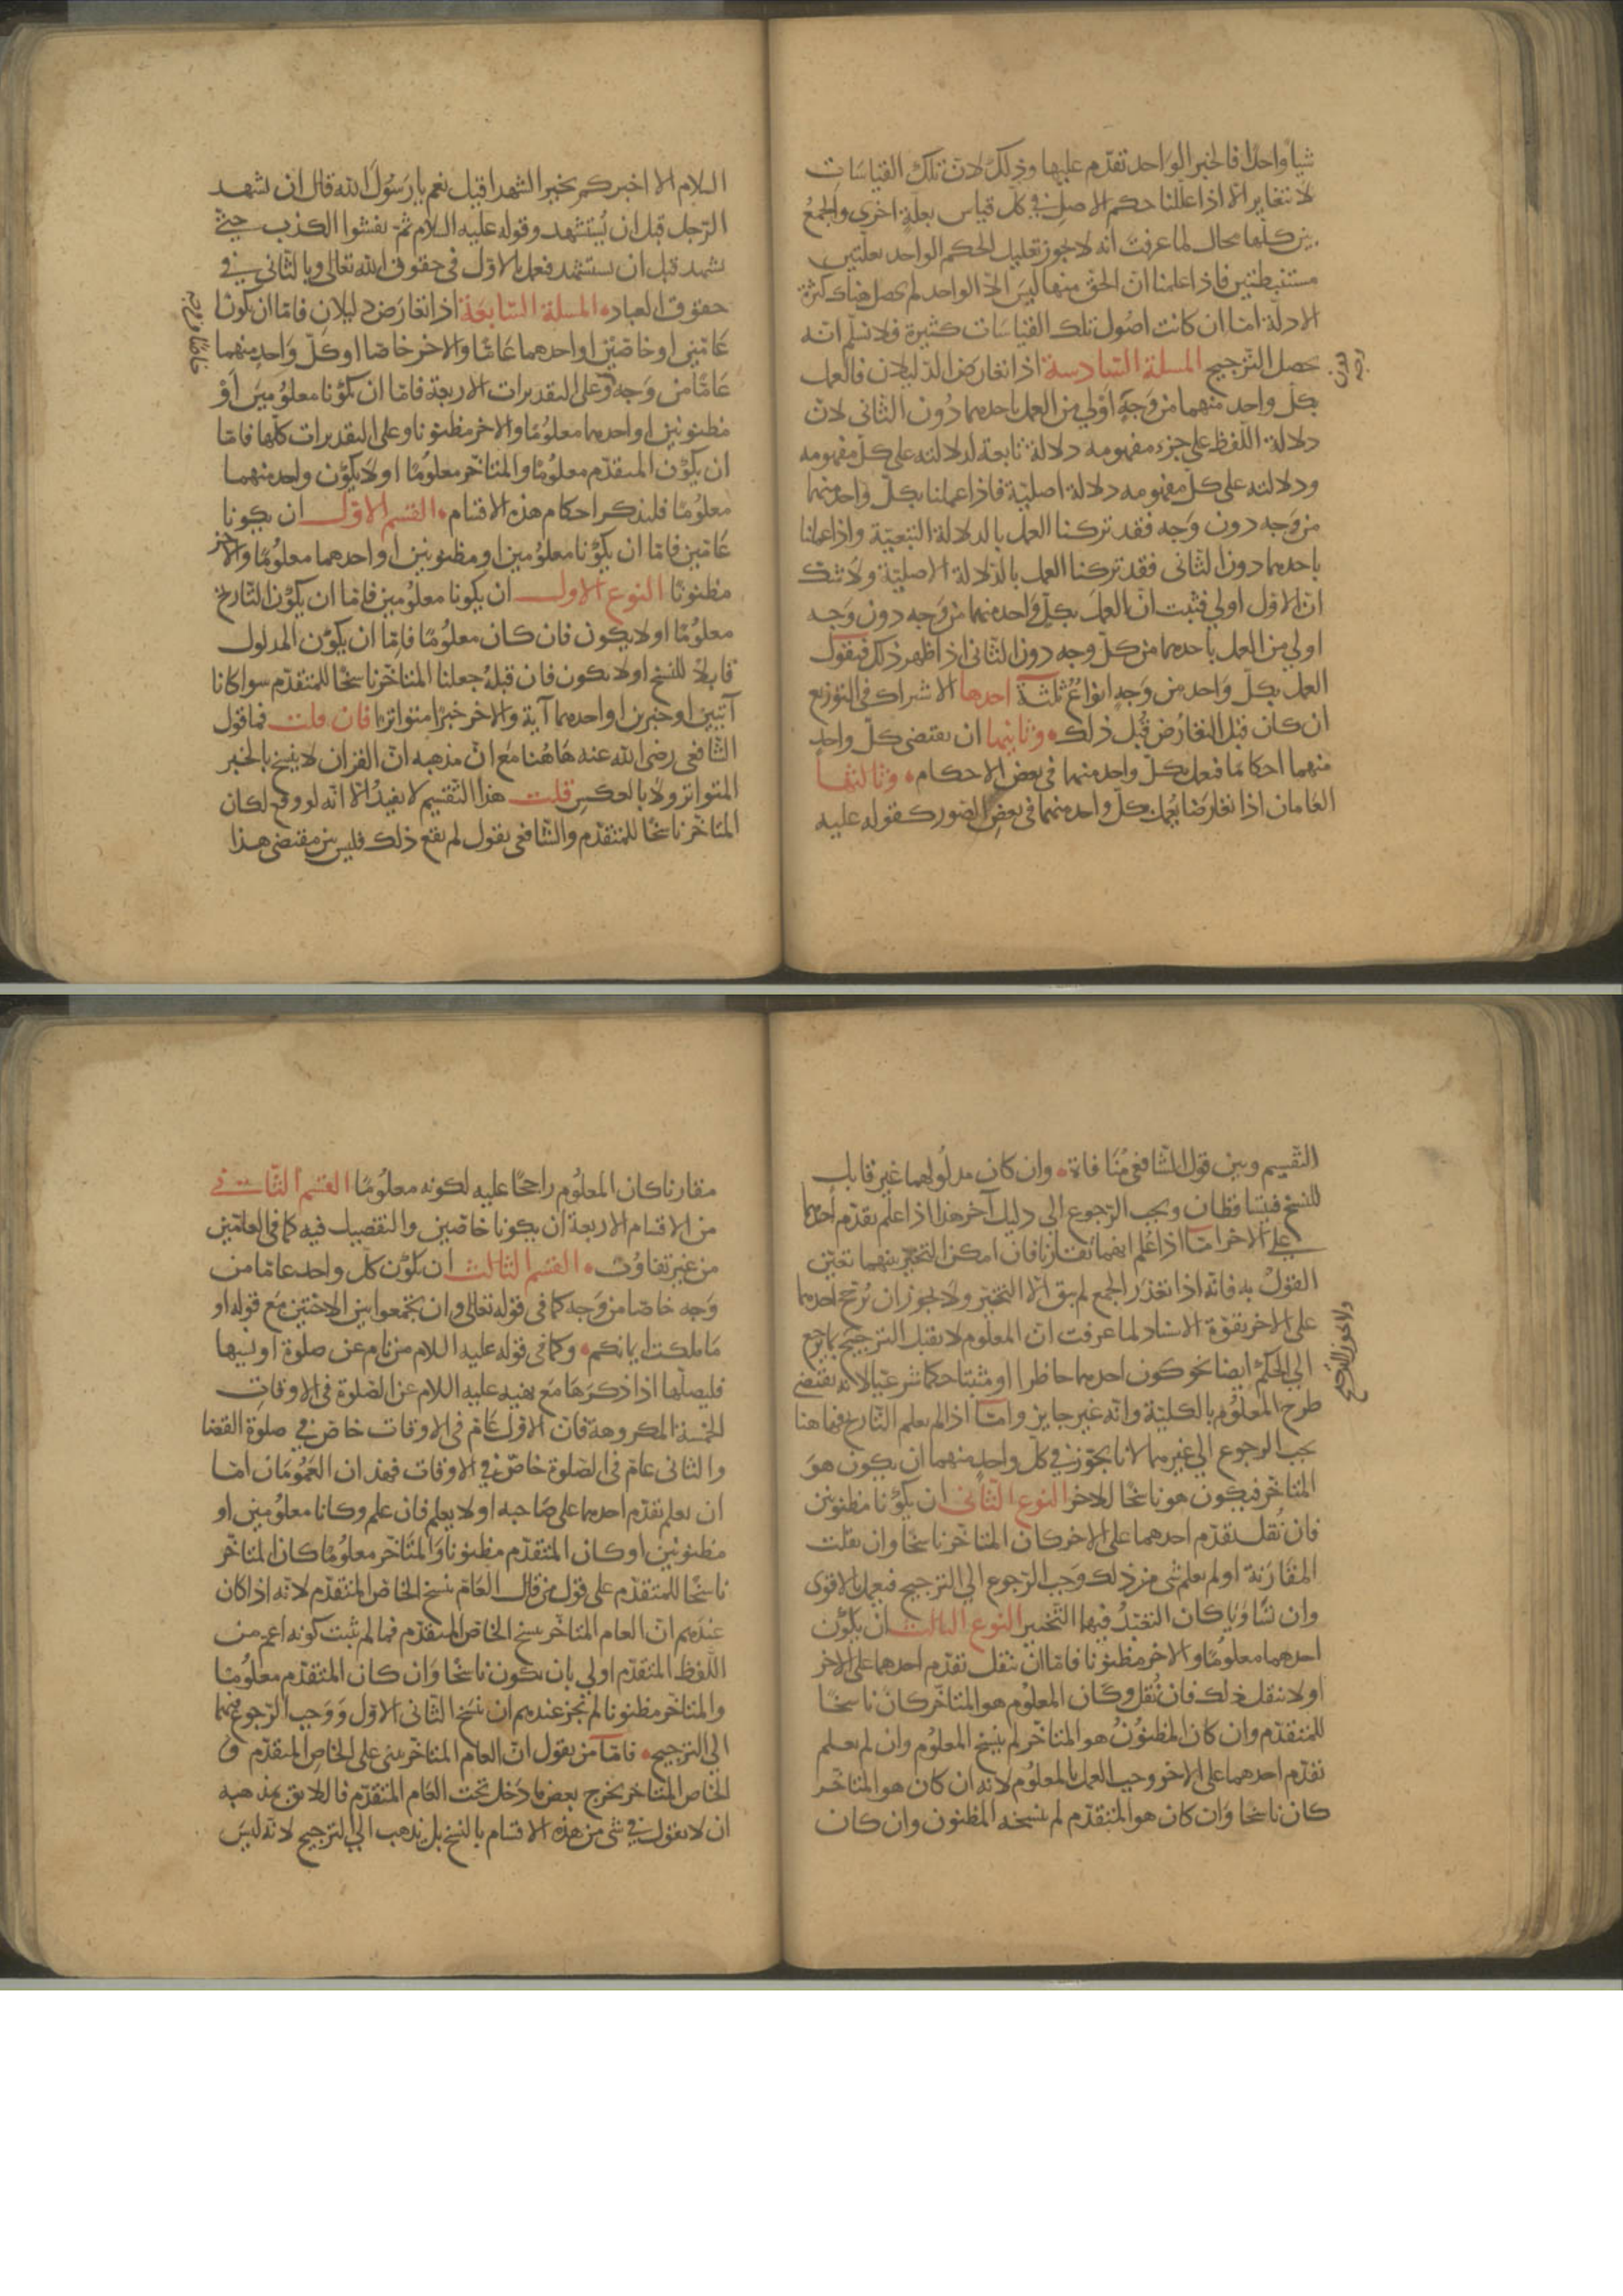 شيا واحدا فالخبر الواحد تقدّم عليها وذلك لانّ تلك القياسات
لا تتغاير الّا اذا عللنا حكم الاصل في كلّ قياس بعلّةٍ اخرى والجمعُ
بين كلّها محال لما عرفت انّه لا يجوز تعليل الحكم الواحد بعلّتين
مستنبطتين فاذا علمنا انّ الحق منها ليس الّا الواحد لم يحصل هناك كثرة
الادلّة امّا ان كانت اصُول تلك القياسَات كثيرة فلا نسلّم انّه
يحصل الترجيح المسلة السّادسة اذا تعارض الدّليلان فالعمل
بكلّ واحد منهما من وجهٍ اولي من العمل باحدهما دُون الثاني لانّ
دلالة اللّفظ على جزء مفهومه دلالة تابعة لدلالته على كلّ مفهومه
ودلالته على كلّ مفهومه دلالة اصليّة فاذا عملنا بكلّ واحد منهما
من وَجه دون وَجه فقد تركنا العمل بالدلالة التبعيّة واذا عملنا
باحدهما دون الثاني فقد تركنا العمل بالدلالة الاصليّة ولا شك
انّ الاوّل اولي فثبت انّ العمل بكلّ واحد منهما من وجه دون وَجه
اولي من العمل باحدهما من كلّ وجه دون الثاني اذا ظهر ذلك فنقول
العمل بكلّ وَاحد من وَجهٍ انواعُ ثلثة احدها الاشتراك في التوزيع
ان كان قبل التعارُض قُبل ذلك وثانيها ان يقتضى كلّ واحدٍ
منهما احكامًا فيعمل بكلّ واحد منهما في بعض الاحكام وثالثها
العَامان اذا تعارضا يعمل بكلّ واحد منهما في بعضِ الصّور كقوله عليه
السلام الا اخبركم بخير الشهدا قيل نعم يا رَسُولَ الله قال ان يشهد
الرّجل قبل ان يُستشهد وقوله عليه السلام ثمّ يفشوا الكذب حتّى
يشهد قبل ان يستشهد فعمل بالاوّل في حقوق الله تعالى وبالثّاني في
حقوق العباد المسلة السّابعَة اذا تعارَض دليلان فامّا ان يكونا
عَامّين او خاصّين او احدهما عَامًّا والاخر خاصّا او كلّ وَاحدٍ منهما
عَامًّا من وَجه وعلى التقديرات الاربعة فامّا ان يكونا معلوُميَن اَوْ
مظنونين او احدهما معلوُمًا والاخر مظنونا وعلى التقديرات كلّها فامّا
ان يكوُن المتقدّم معلوُمًا والمتاخّر معلوُمًا او لا يكوُن واحد منهما
معلوُمًا فلنذكر احكام هذه الاقسام القسم الاوّل ان يكونا
عَامّين فامّا ان يكوُنا معلوُمين او مظنونين او احدهما معلومًا والاخر
مظنونًا النوع الاول ان يكونا معلوُمين فامّا ان يكوُن التّاريخ
معلوُمًا او لا يكون فان كان معلوُمًا فامّا ان يكوُن المدلول
قابلًا للنسخ او لا يكون فان قبلهُ جعلنا المتاخّر ناسخًا للمتقدّم سوا كانا
آيتين او خبرين او احدهما آية والاخر خبرًا متواترًا فان قلت فما قول
الشّافعي رضى الله عنه هَاهُنا مَع انّ مذهبه انّ القران لا ينسخ بالخبر
المتواتر ولا بالعكس قلت هذا التّقسيم لا يفيدُ الّا انّه لو وقع لكان
المتاخّر ناسخًا للمتقدّم والشّافعي يقول لم يقع ذلك فليس بين مقتضى هذا
التّقسيم وبين قول الشّافعي مُنَافاة وان كان مدلُولهما غير قابل
للنسخ فيتساقطان ويجب الرّجوع الى دليل آخر هذا اذا علم تقدّم احدهما
على الاخر امّا اذا عُلم انهما تقارنا فان امكن التخيير بينهما تعيّن
القولُ به فانّه اذا تعذرَ الجمع لم يبق الّا التخيير ولا يجوز ان يُرجّح احدهما
على الاخر بقوّة الاسناد لما عرفت انّ المعلوم لا يقبل الترجيح بما يرجع
الى الحكم ايضا نحو كون احدهما حاظرا او مثبتا حكما شرعيّا لانّه يقتضى
طرح المعلوُم بالكليّة وانّه غير جايز وامّا اذا لم يعلم التّاريخ فهاهنا
يجب الرجوع الى غيرهما لانا نجوّز في كلّ واحدٍ منهما ان يكون هوَ
المتاخّر فيكون هو ناسخًا للاخر النوع الثّاني ان يكوُنا مظنونين
فان نُقل تقدّم احدهما على الاخر كان المتاخّر ناسخًا وان نقلت
المقارَنة او لم يعلم شى من ذلك وَجب الرّجوع الى الترجيح فيعمل بالاقوى
وان تسَاوَيا كان التعبّدُ فيهما التّخيير النوع الثالث ان يكوُن
احدهما معلوُمًا والاخر مظنونا فامّا ان ينقل تقدّم احدهما على الاخر
او لا ينقل ذلك فان نُقل وكَان المعلوُم هو المتاخّر كان ناسخًا
للمتقدّم وان كان المظنوُنُ هو المتاخّر لم ينسخ المعلوُم وان لم يعلم
تقدّم احدهما على الاخر وجب العمل بالمعلوُم لانه ان كان هو المتاخّر
كان ناسخا وَان كان هو المتقدّم لم ينسخه المظنون وان كان
مقارنا كان المعلوُم راجحًا عليه لكونه معلومًا القسم الثّاني
من الاقسام الاربعة ان يكونا خاصّين والتفصيل فيه كما في العامّين
من غير تفاوُت القسم الثالث ان يكوُن كلّ واحد عامّا من
وَجه خاصّا من وَجه كما في قوله تعالى وان تجمعوا بين الاختين مَع قوله او
مَا ملكت ايمانكم وكما في قوله عليه السلام من نام عن صلوة او نسيها
فليصلّها اذا ذكرَهَا مَع نهيه عليه السلام عن الصّلوة في الاوقات
الخمسة المكروهة فانّ الاوّل عَامّ في الاوقات خاصّ في صلوة القضا
والثاني عامّ في الصّلوة خاصّ في الاوقات فهذان العمُومَان امّا
ان يعلم تقدّم احدهما على صَاحبه او لا يعلم فان علم وكانا معلوُمين او
مظنونين او كان المتقدّم مظنونا وَالمتَاخّر معلوُمًا كان المتاخّر
ناسخًا للمتقدّم على قول من قال العَامّ ينسخ الخاصّ المتقدّم لانّه اذا كان
عندهم انّ العام المتاخّر ينسخ الخاصّ المتقدّم فما لم يثبت كونه اعم من
اللّفظ المتقدّم اولي بان يكون ناسخًا وَان كان المتقدّم معلوُمًا
والمتاخّر مظنونا لم يجز عندهم ان ينسَخ الثّاني الاوّل وَوَجب الرّجوع فيهما
الى الترجيح فامّا من يقول انّ العام المتاخّر يبنى على الخاصّ المتقدّم و
الخاصّ المتاخر يخرج بعض ما دَخل تحت العَام المتقدّم فاللايق بمذهبه
ان لا يقول في شى من هذه الاقسام بالنسخ بل يذهب الى الترجيح لانّه ليسَ